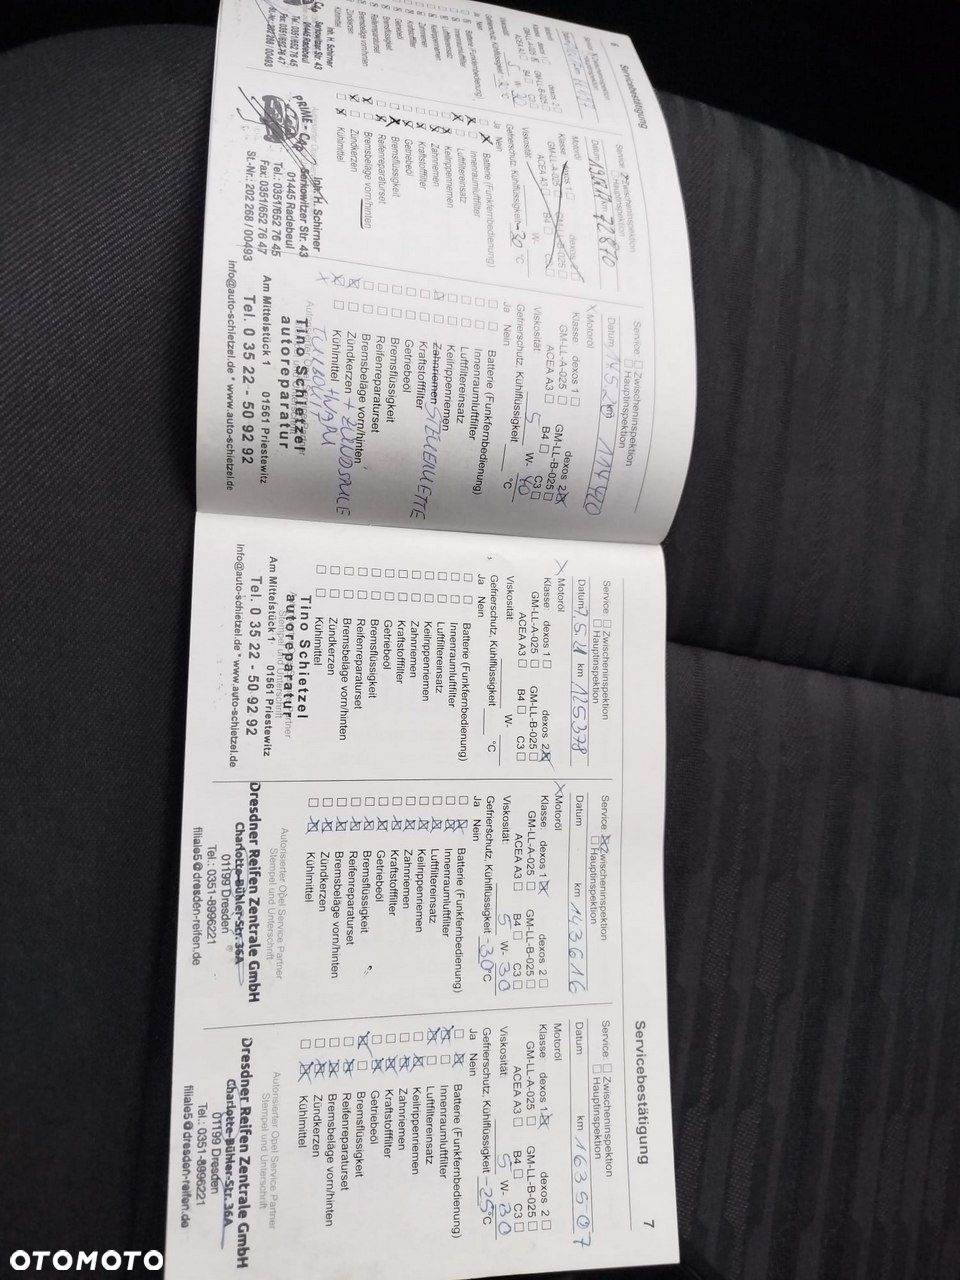 6 Servicebestätigung
Service: Zwischeninspektion
Hauptinspektion
Datum km
Motoröl
Klasse: dexos 1 dexos 2
GM-LL-A-025 GM-LL-B-025
ACEA A3 B4 C3
Viskosität: 5 W- 30
Gefrierschutz. Kühlflüssigkeit -30 °C
Ja Nein
Batterie (Funkfernbedienung)
Innenraumluftfilter
Luftfiltereinsatz
Keilrippenriemen
Zahnriemen
Kraftstofffilter
Getriebeöl
Bremsflüssigkeit
Reifenreparaturset
Bremsbeläge vorn/hinten
Zündkerzen
Kühlmittel
Inh. H. Schirner
Serkowitzer Str. 43
01445 Radebeul
Tel.: 0351/652 76 45
Fax: 0351/652 76 47
St.-Nr.: 202 268 / 00493
Service: Zwischeninspektion
Hauptinspektion
Datum km 72870
Motoröl
Klasse: dexos 1 dexos 2
GM-LL-A-025 GM-LL-B-025
ACEA A3 B4 C3
Viskosität: W-
Gefrierschutz. Kühlflüssigkeit -30 °C
Ja Nein
Batterie (Funkfernbedienung)
Innenraumluftfilter
Luftfiltereinsatz
Keilrippenriemen
Zahnriemen
Kraftstofffilter
Getriebeöl
Bremsflüssigkeit
Reifenreparaturset
Bremsbeläge vorn/hinten
Zündkerzen
Kühlmittel
PRIME-
Inh. H. Schirner
Serkowitzer Str. 43
01445 Radebeul
Tel.: 0351/652 76 45
Fax: 0351/652 76 47
St.-Nr.: 202 268 / 00493
Service: Zwischeninspektion
Hauptinspektion
Datum 14.5.20 km
Motoröl
Klasse: dexos 1 dexos 2
GM-LL-A-025 GM-LL-B-025
ACEA A3 B4 C3
Viskosität: 5 W- 40
Gefrierschutz. Kühlflüssigkeit °C
Ja Nein
Batterie (Funkfernbedienung)
Innenraumluftfilter
Luftfiltereinsatz
Keilrippenriemen
Zahnriemen STEUERKETTE
Kraftstofffilter
Getriebeöl
Bremsflüssigkeit
Reifenreparaturset
Bremsbeläge vorn/hinten
Zündkerzen + ZÜNDSPULE
Kühlmittel
Tino Schietzel
autoreparatur
Am Mittelstück 1 01561 Priestewitz
Tel. 0 35 22 - 50 92 92
info@auto-schietzel.de * www.auto-schietzel.de
Servicebestätigung 7
Service: Zwischeninspektion
Hauptinspektion
Datum 7.5.21 km 125378
Motoröl
Klasse: dexos 1 dexos 2
GM-LL-A-025 GM-LL-B-025
ACEA A3 B4 C3
Viskosität: W-
Gefrierschutz. Kühlflüssigkeit °C
Ja Nein
Batterie (Funkfernbedienung)
Innenraumluftfilter
Luftfiltereinsatz
Keilrippenriemen
Zahnriemen
Kraftstofffilter
Getriebeöl
Bremsflüssigkeit
Reifenreparaturset
Bremsbeläge vorn/hinten
Zündkerzen
Kühlmittel
Tino Schietzel
autoreparatur
Am Mittelstück 1 01561 Priestewitz
Tel. 0 35 22 - 50 92 92
info@auto-schietzel.de * www.auto-schietzel.de
Service: Zwischeninspektion
Hauptinspektion
Datum km 143616
Motoröl
Klasse: dexos 1 dexos 2
GM-LL-A-025 GM-LL-B-025
ACEA A3 B4 C3
Viskosität: 5 W- 30
Gefrierschutz. Kühlflüssigkeit -30 °C
Ja Nein
Batterie (Funkfernbedienung)
Innenraumluftfilter
Luftfiltereinsatz
Keilrippenriemen
Zahnriemen
Kraftstofffilter
Getriebeöl
Bremsflüssigkeit
Reifenreparaturset
Bremsbeläge vorn/hinten
Zündkerzen
Kühlmittel
Autorisierter Opel Service Partner
Stempel und Unterschrift
Dresdner Reifen Zentrale GmbH
Charlotte-Bühler-Str. 36A
01199 Dresden
Tel.: 0351-8996221
filiale5@dresden-reifen.de
Service: Zwischeninspektion
Hauptinspektion
Datum km 163507
Motoröl
Klasse: dexos 1 dexos 2
GM-LL-A-025 GM-LL-B-025
ACEA A3 B4 C3
Viskosität: 5 W- 30
Gefrierschutz. Kühlflüssigkeit -25 °C
Ja Nein
Batterie (Funkfernbedienung)
Innenraumluftfilter
Luftfiltereinsatz
Keilrippenriemen
Zahnriemen
Kraftstofffilter
Getriebeöl
Bremsflüssigkeit
Reifenreparaturset
Bremsbeläge vorn/hinten
Zündkerzen
Kühlmittel
Autorisierter Opel Service Partner
Stempel und Unterschrift
Dresdner Reifen Zentrale GmbH
Charlotte-Bühler-Str. 36A
01199 Dresden
Tel.: 0351-8996221
filiale5@dresden-reifen.de
OTOMOTO